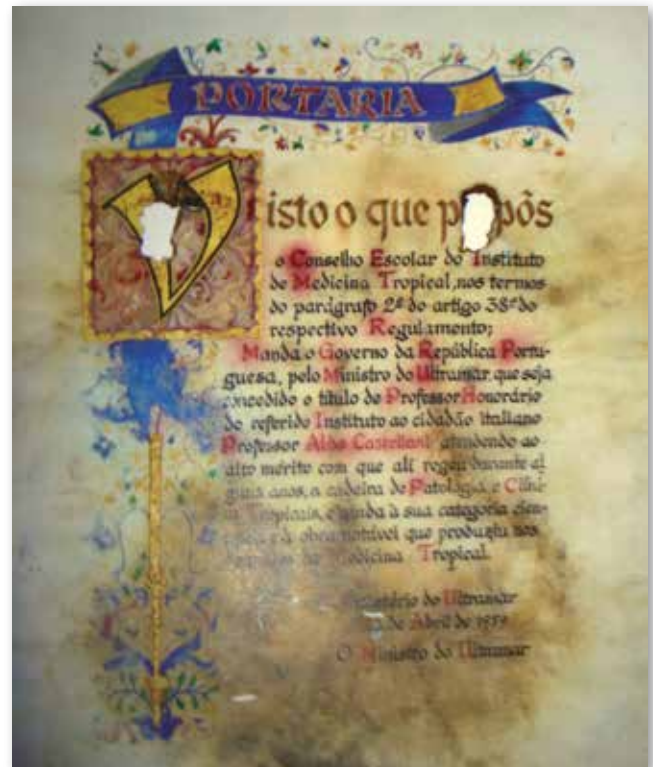 PORTARIA
Visto o que p pôs
o Conselho Escolar do Instituto
de Medicina Tropical, nos termos
do parágrafo 2º do artigo 38º do
respectivo Regulamento;
Manda o Governo da República Portu-
guesa, pelo Ministro do Ultramar, que seja
concedido o título de Professor Honorário
do referido Instituto ao cidadão italiano
Professor Aldo Castellani atendendo ao
alto mérito com que ali regeu durante al
guns anos, a cadeira de Patologia e Clíni-
Tropicais, e ainda à sua categoria cien-
e à obra notável que produziu nos
Medicina Tropical.
do Ultramar
de Abril de 1959
O Ministro do Ultramar